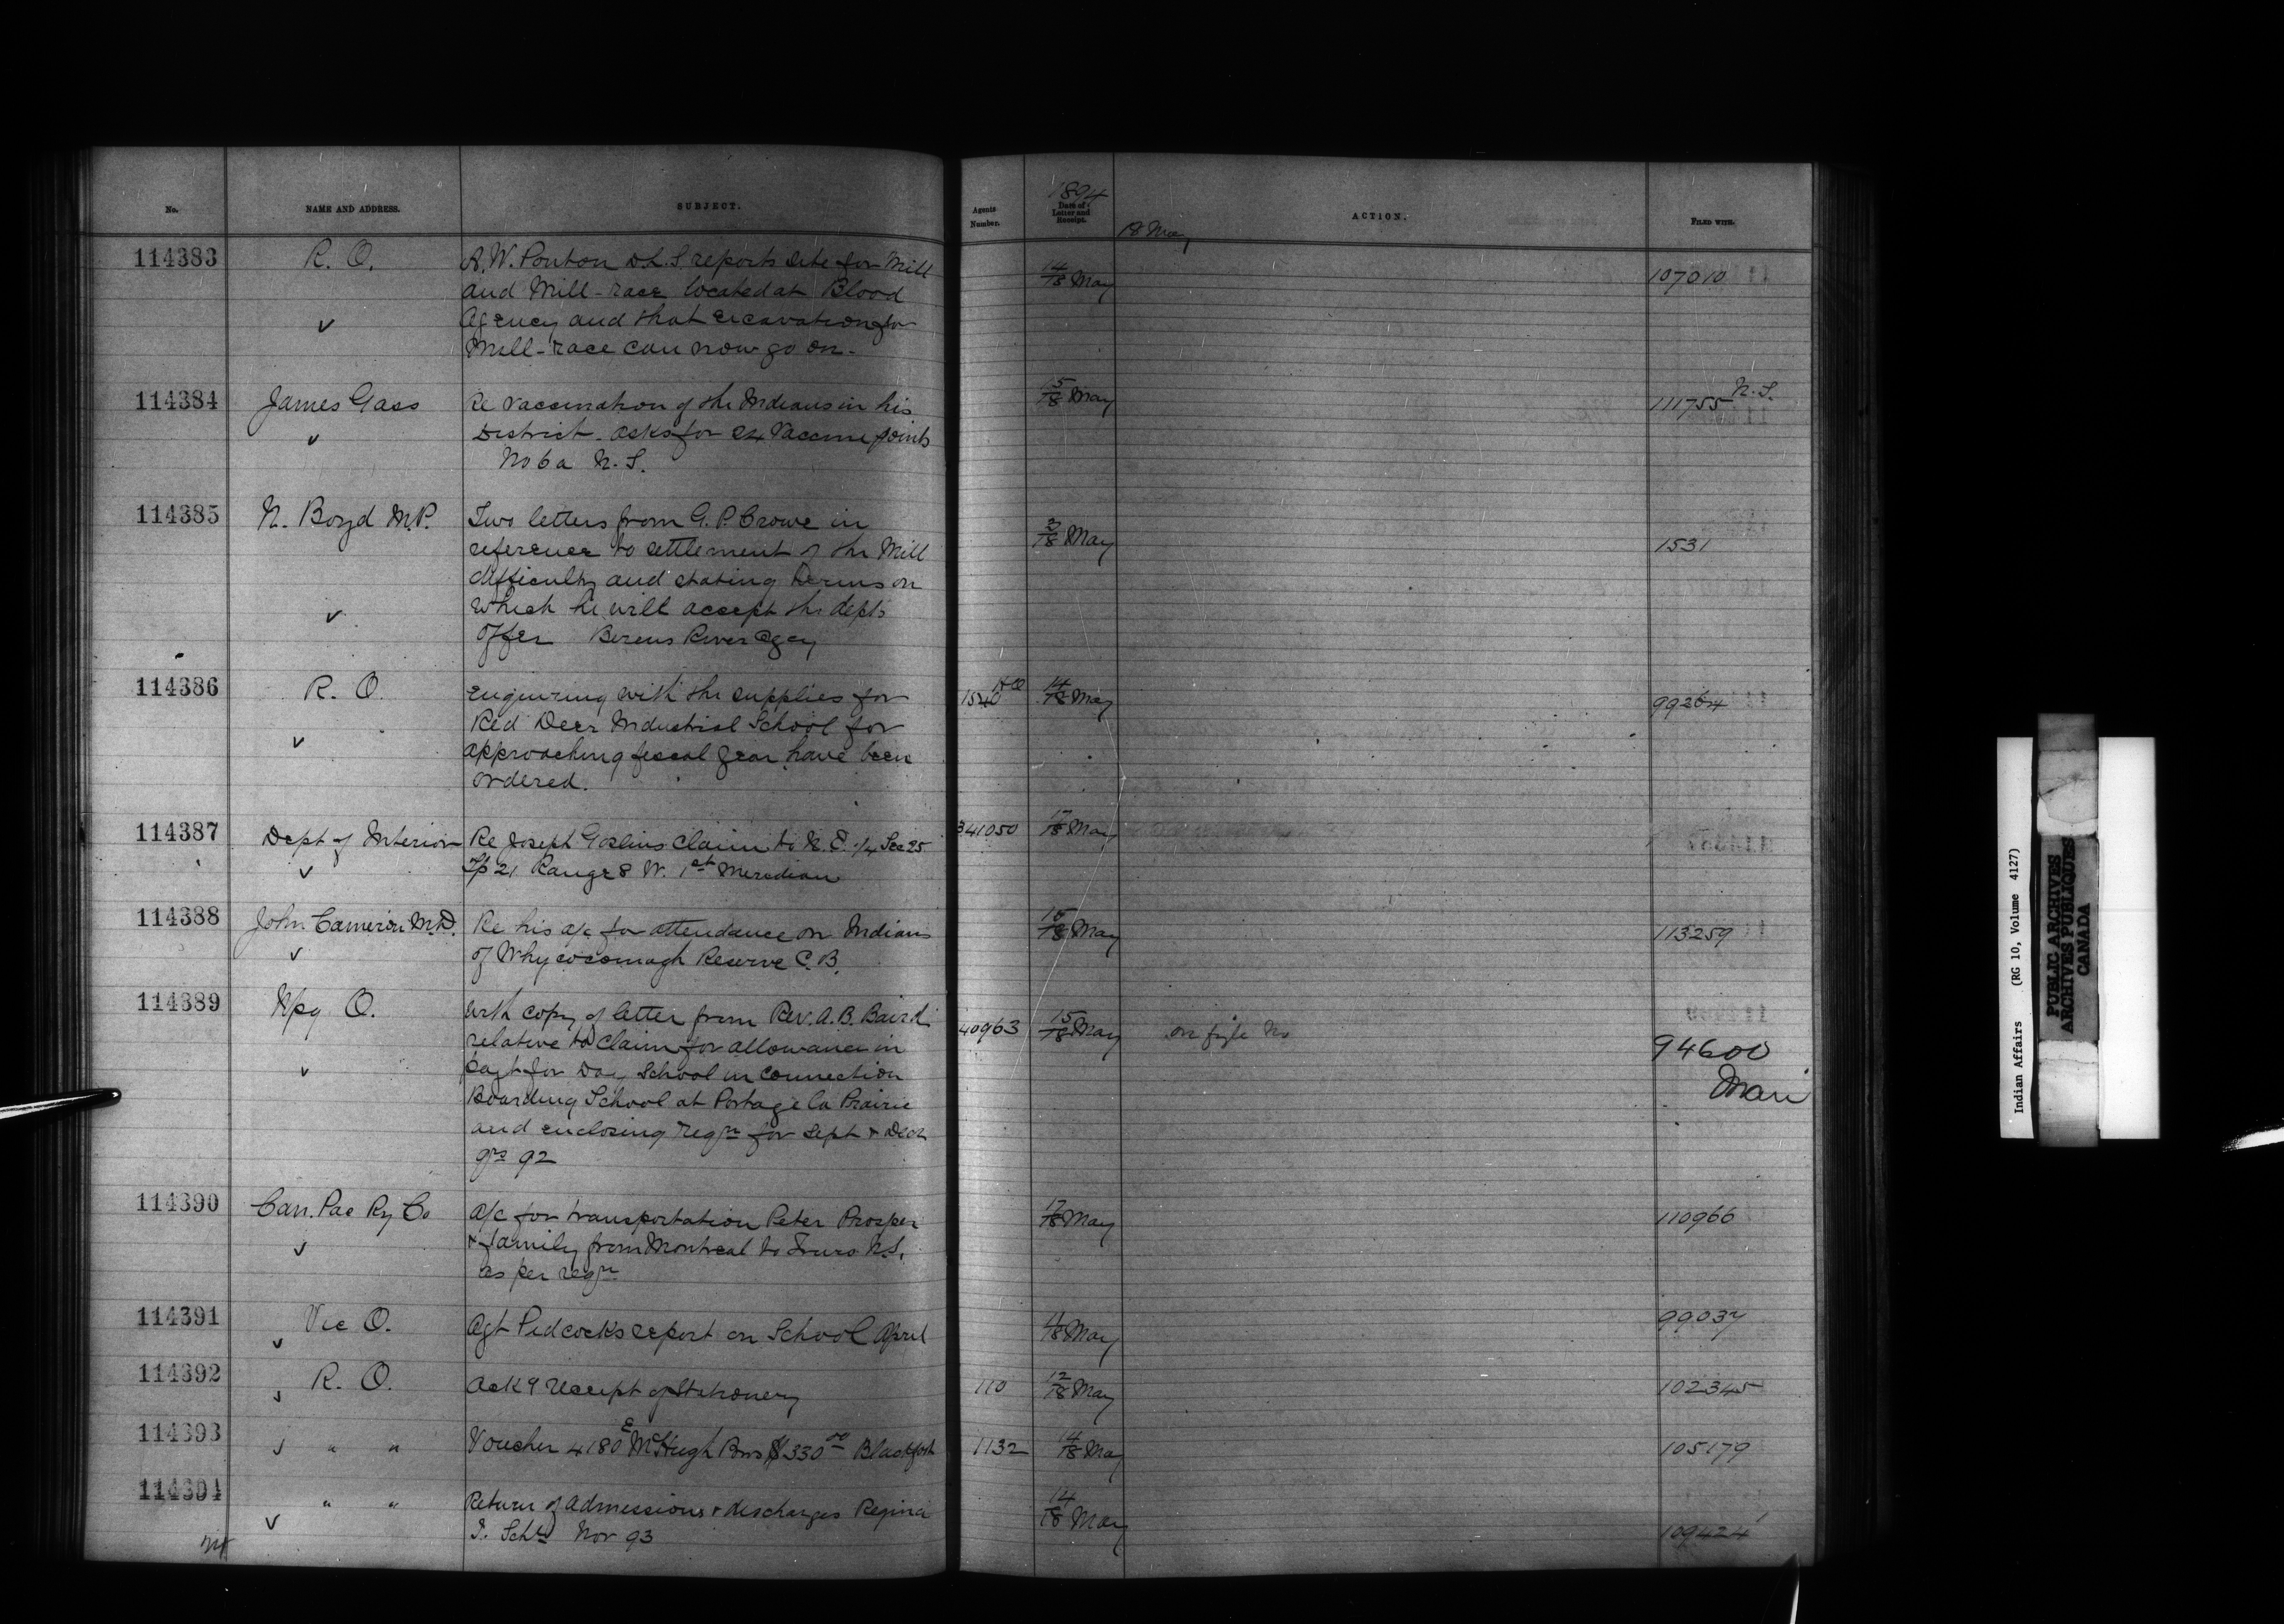 No. NAME AND ADDRESS. SUBJECT. Agents Number. 1894 Date of Letter and Receipt. ACTION. FILED WITH.
18 May
114383 R. O. A. W. Ponton D.L.S. reports site for Mill 14/18 May 107010
and Mill-race located at Blood
Agency and that excavation for
Mill-race can now go on-
114384 James Gass Re vaccination of the Indians in his 15/18 May 111755 N.S.
District. asks for 24 Vaccine points
No 6a N.S.
114385 N. Boyd M.P. Two letters from G. P. Crowe in 3/18 May 1531
reference to settlement of the Mill
difficulty and stating terms on
which he will accept the depts
offer Berens River Agcy
114386 R. O. enquiring with the supplies for 1540 HO 14/18 May 99264
Red Deer Industrial School for
approaching fiscal year have been
ordered.
114387 Dept of Interior Re Joseph Goslins claim to N.E. 1/4 Sec 25 341050 17/18 May
Tp 21 Range 8 W. 1st Meredian
114388 John Cameron M.D. Re his a/c for attendance on Indians /18 May 113259
of Whycocomagh Reserve C.B.
114389 Wpg O. with copy of letter from Rev. A. B. Baird 40963 15/18 May on file No 94600
relative to claim for allowance in
payt for Day School in connection Man
Boarding School at Portage la Prairie
and enclosing reqn for Sept & Decr
qrs 92
114390 Can. Pac Ry Co a/c for transportation Peter Prosper 17/18 May 110966
& family from Montreal to Truro N.S.
as per reqn
114391 Vic O. Agt Pidcocks report on School April /18 May 99037
114392 R. O. Ackg receipt of Stationery 110 12/18 May 102345
114393 " " Voucher 4180 E McHugh Bros $330 00 Blackfoot 1132 14/18 May 105179
114394 " " Return of admissions & discharges Regina 14/18 May 109424
I. Schl Nov 93
Indian Affairs (RG 10, Volume 4127)
PUBLIC ARCHIVES
ARCHIVES PUBLIQUES
CANADA